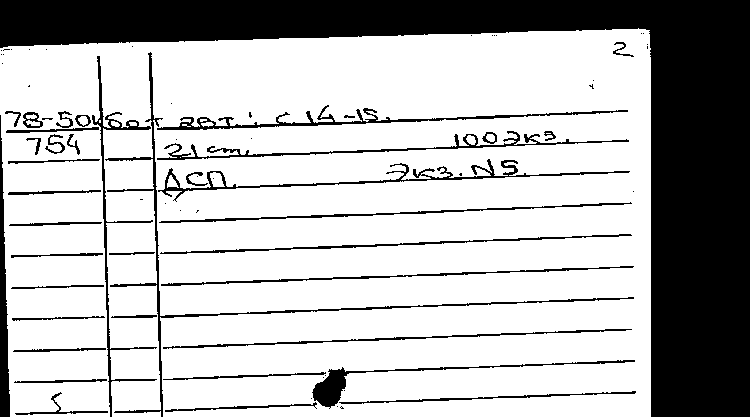 2
78-504 бот авт.: с 14-15.
754 21 cm. 100 экз.
ДСП. Экз. N5.